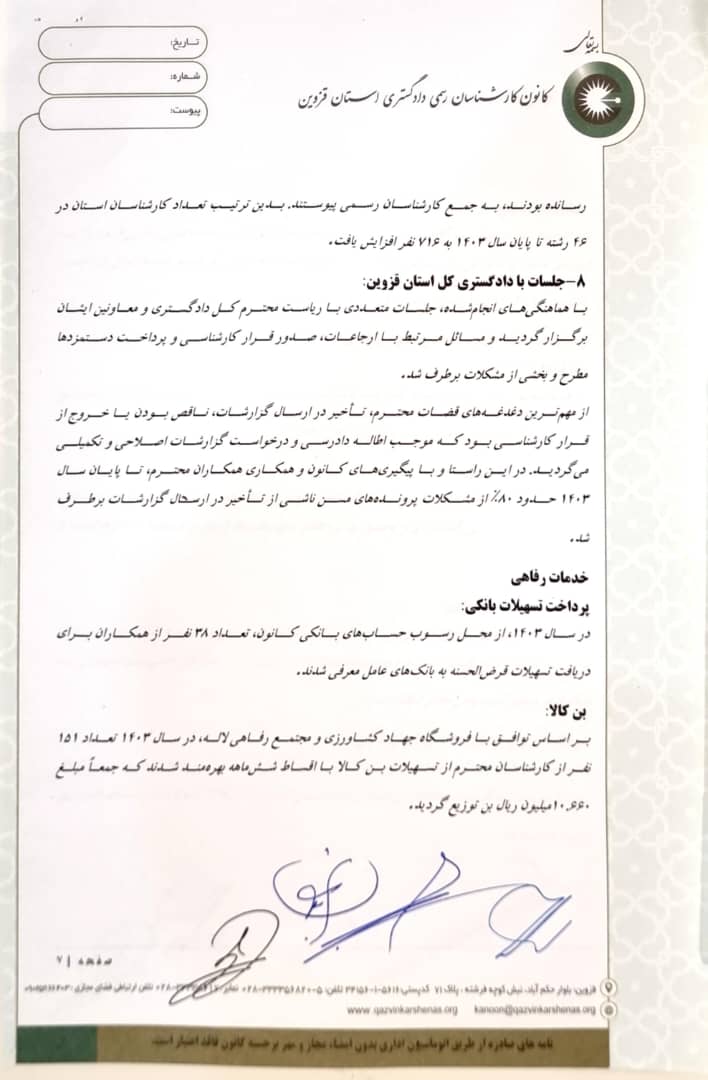 بسمه تعالی
تاریخ:
شماره:
پیوست:
کانون کارشناسان رسمی دادگستری استان قزوین
رسانده بودند، به جمع کارشناسان رسمی پیوستند. بدین ترتیب تعداد کارشناسان استان در
۴۶ رشته تا پایان سال ۱۴۰۳ به ۷۱۶ نفر افزایش یافت.
۸-جلسات با دادگستری کل استان قزوین:
با هماهنگی‌های انجام‌شده، جلسات متعددی با ریاست محترم کل دادگستری و معاونین ایشان
برگزار گردید و مسائل مرتبط با ارجاعات، صدور قرار کارشناسی و پرداخت دستمزدها
مطرح و بخشی از مشکلات برطرف شد.
از مهم‌ترین دغدغه‌های قضات محترم، تأخیر در ارسال گزارشات، ناقص بودن یا خروج از
قرار کارشناسی بود که موجب اطاله دادرسی و درخواست گزارشات اصلاحی و تکمیلی
می‌گردید. در این راستا و با پیگیری‌های کانون و همکاری همکاران محترم، تا پایان سال
۱۴۰۳ حدود ۸۰٪ از مشکلات پرونده‌های مسن ناشی از تأخیر در ارسال گزارشات برطرف
شد.
خدمات رفاهی
پرداخت تسهیلات بانکی:
در سال ۱۴۰۳، از محل رسوب حساب‌های بانکی کانون، تعداد ۳۸ نفر از همکاران برای
دریافت تسهیلات قرض‌الحسنه به بانک‌های عامل معرفی شدند.
بن کالا:
بر اساس توافق با فروشگاه جهاد کشاورزی و مجتمع رفاهی لاله، در سال ۱۴۰۳ تعداد ۱۵۱
نفر از کارشناسان محترم از تسهیلات بن کالا با اقساط شش‌ماهه بهره‌مند شدند که جمعاً مبلغ
۱۰.۶۶۰میلیون ریال بن توزیع گردید.
صفحه | ۷
قزوین: بلوار حکم آباد، نبش کوچه فرشته ، پلاک ۷۱ کدپستی: تلفن: ۵-۳۳۳۵۶۸۲۰-۰۲۸ نمابر: تلفن ارتباطی فضای مجازی:
www.qazvinkarshenas.org kanoon@qazvinkarshenas.org
نامه های صادره از طریق اتوماسیون اداری بدون امضاء مجاز و مهر برجسته کانون فاقد اعتبار است.